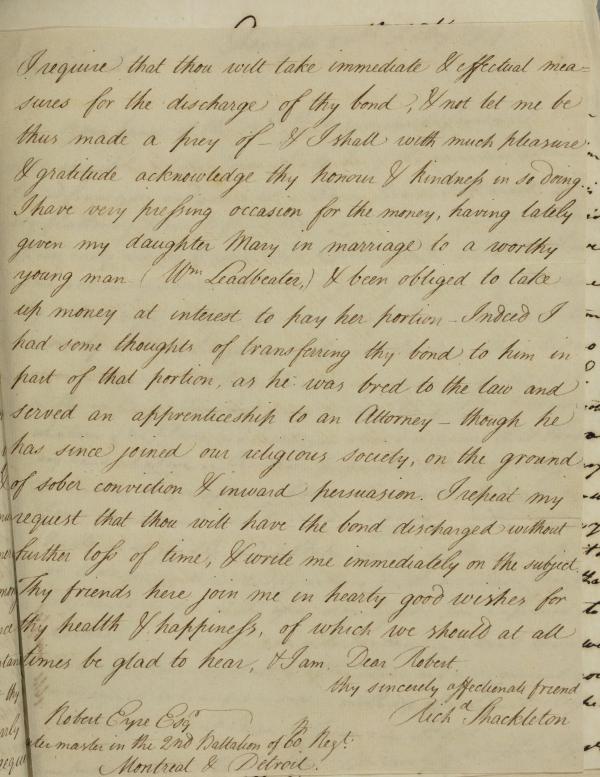 I require that thou wilt take immediate & effectual mea=
sures for the discharge of thy bond, & not let me be
thus made a prey of - & I shall with much pleasure
& gratitude acknowledge thy honour & kindness in so doing.
I have very pressing occasion for the money, having lately
given my daughter Mary in marriage to a worthy
young man (Wm Leadbeater,) & been obliged to take
up money at interest to pay her portion - Indeed I
had some thoughts of transferring thy bond to him in
part of that portion, as he was bred to the law and
served an apprenticeship to an Attorney - though he
has since joined our religious society, on the ground
of sober conviction & inward persuasion. I repeat my
request that thou wilt have the bond discharged without
further loss of time, & write me immediately on the subject.
Thy friends here join me in hearty good wishes for
thy health & happiness, of which we should at all
times be glad to hear, & I am, Dear Robert,
thy sincerely affectionate friend
Richd Shackleton
Robert Eyre Esqr
ter master in the 2nd Battalion of 60th Regt
Montreal & Detroit.